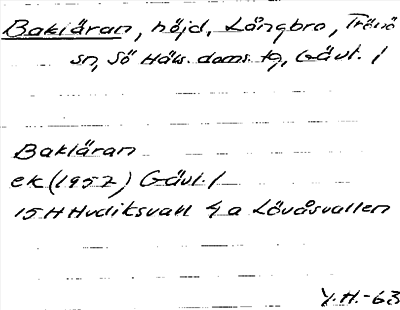 Bakläran, höjd, Långbro, Trönö
sn, Sö Häls. doms. tg, Gävl. l
Bakläran
ek (1957) Gävl. l
15H Hudiksvall 4 a Lövåsvallen
Y.H.-63